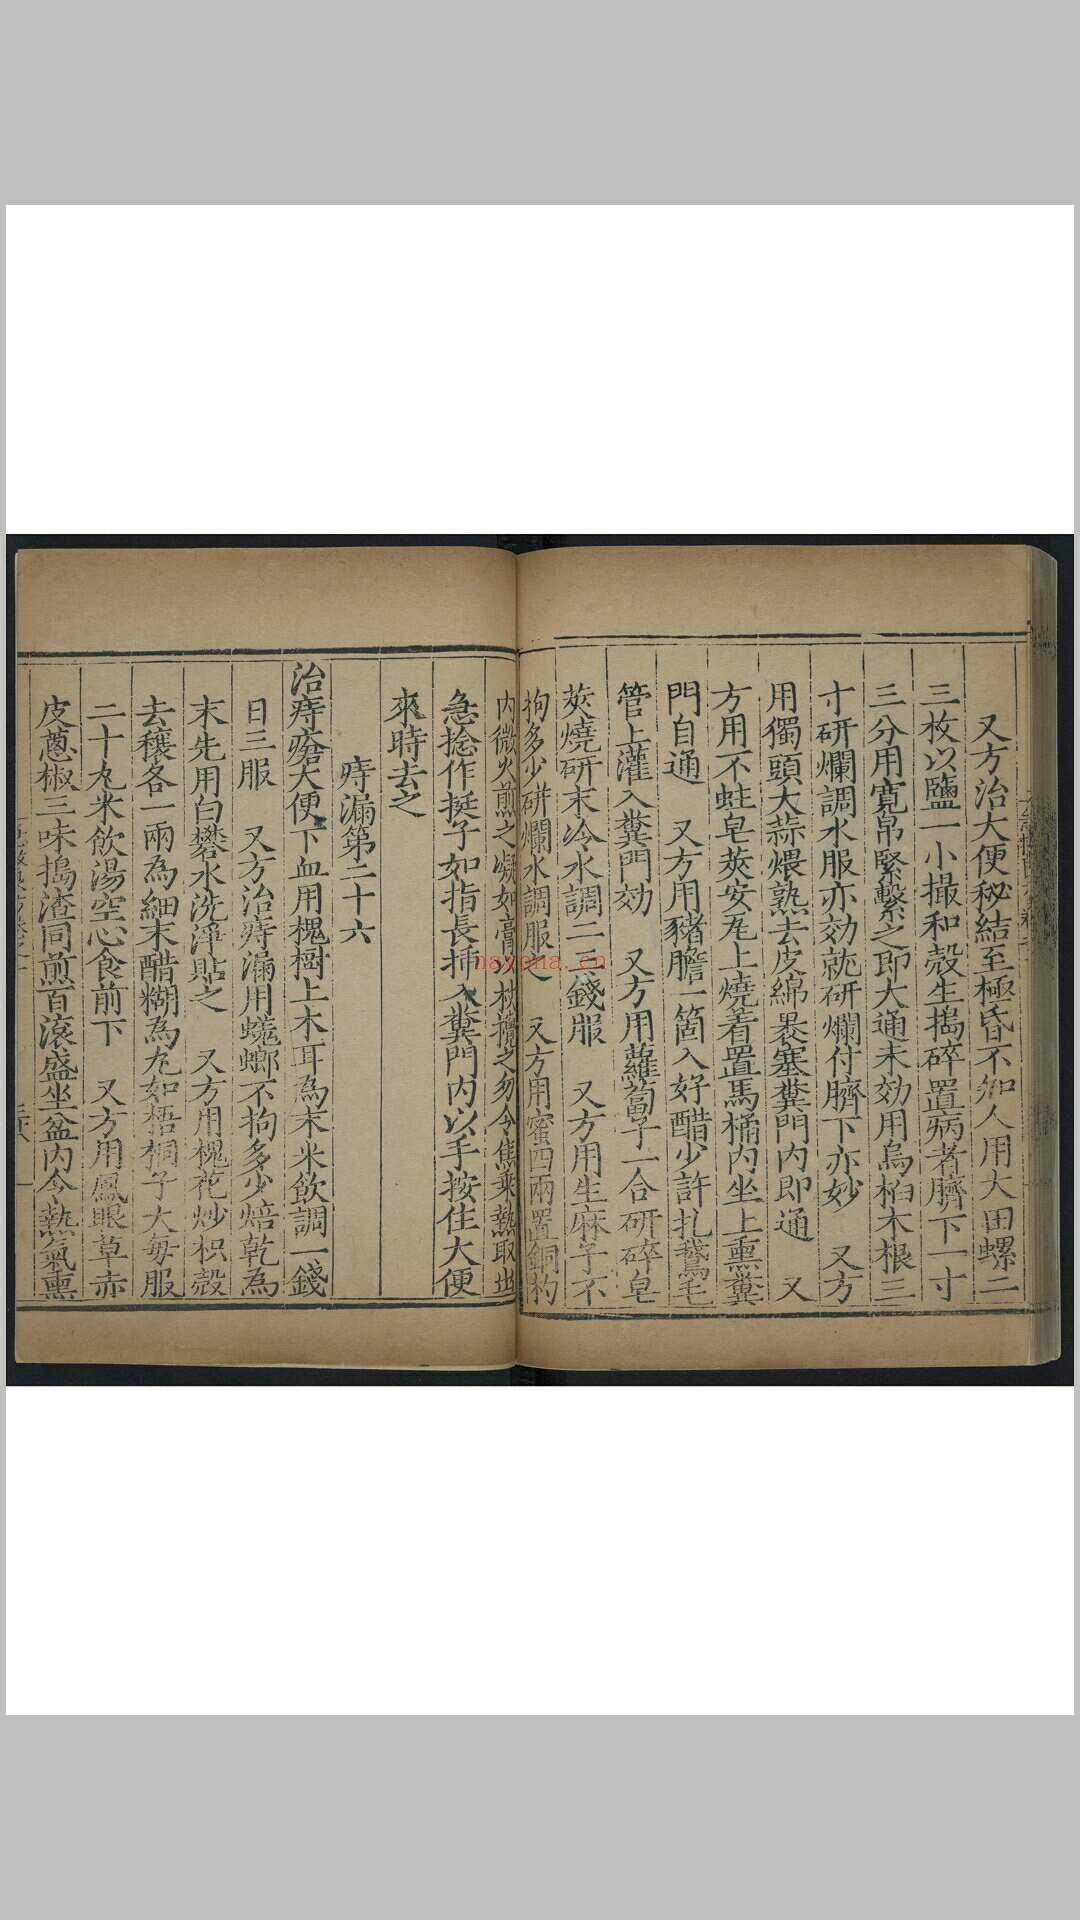 又方治大便秘結至極昏不知人用大田螺二
三枚以鹽一小撮和殼生搗碎置病者臍下一寸
三分用寬帛緊繫之即大通未効用烏桕木根三
寸研爛調水服亦効就研爛付臍下亦妙　又方
用獨頭大蒜煨熟去皮綿裹塞糞門內即通　又
方用不蛀皂莢安瓦上燒着置馬桶內坐上熏糞
門自通　又方用豬膽一箇入好醋少許扎鵞毛
管上灌入糞門効　又方用蘿蔔子一合研碎皂
莢燒研末冷水調二三錢服　又方用生麻子不
拘多少研爛水調服之　又方用蜜四兩置銅杓
內微火煎之凝如膏以杖攪之勿令焦乘熱取出
急捻作挺子如指長挿入糞門內以手按住大便
來時去之
痔漏第二十六
治痔瘡大便下血用槐樹上木耳為末米飲調一錢
日三服　又方治痔漏用蜣螂不拘多少焙乾為
末先用白礬水洗淨貼之　又方用槐花炒枳殼
去穰各一兩為細末醋糊為丸如梧桐子大每服
二十丸米飲湯空心食前下　又方用鳳眼草赤
皮蔥椒三味搗渣同煎百滾盛坐盆內令熱氣熏
naxona.cn